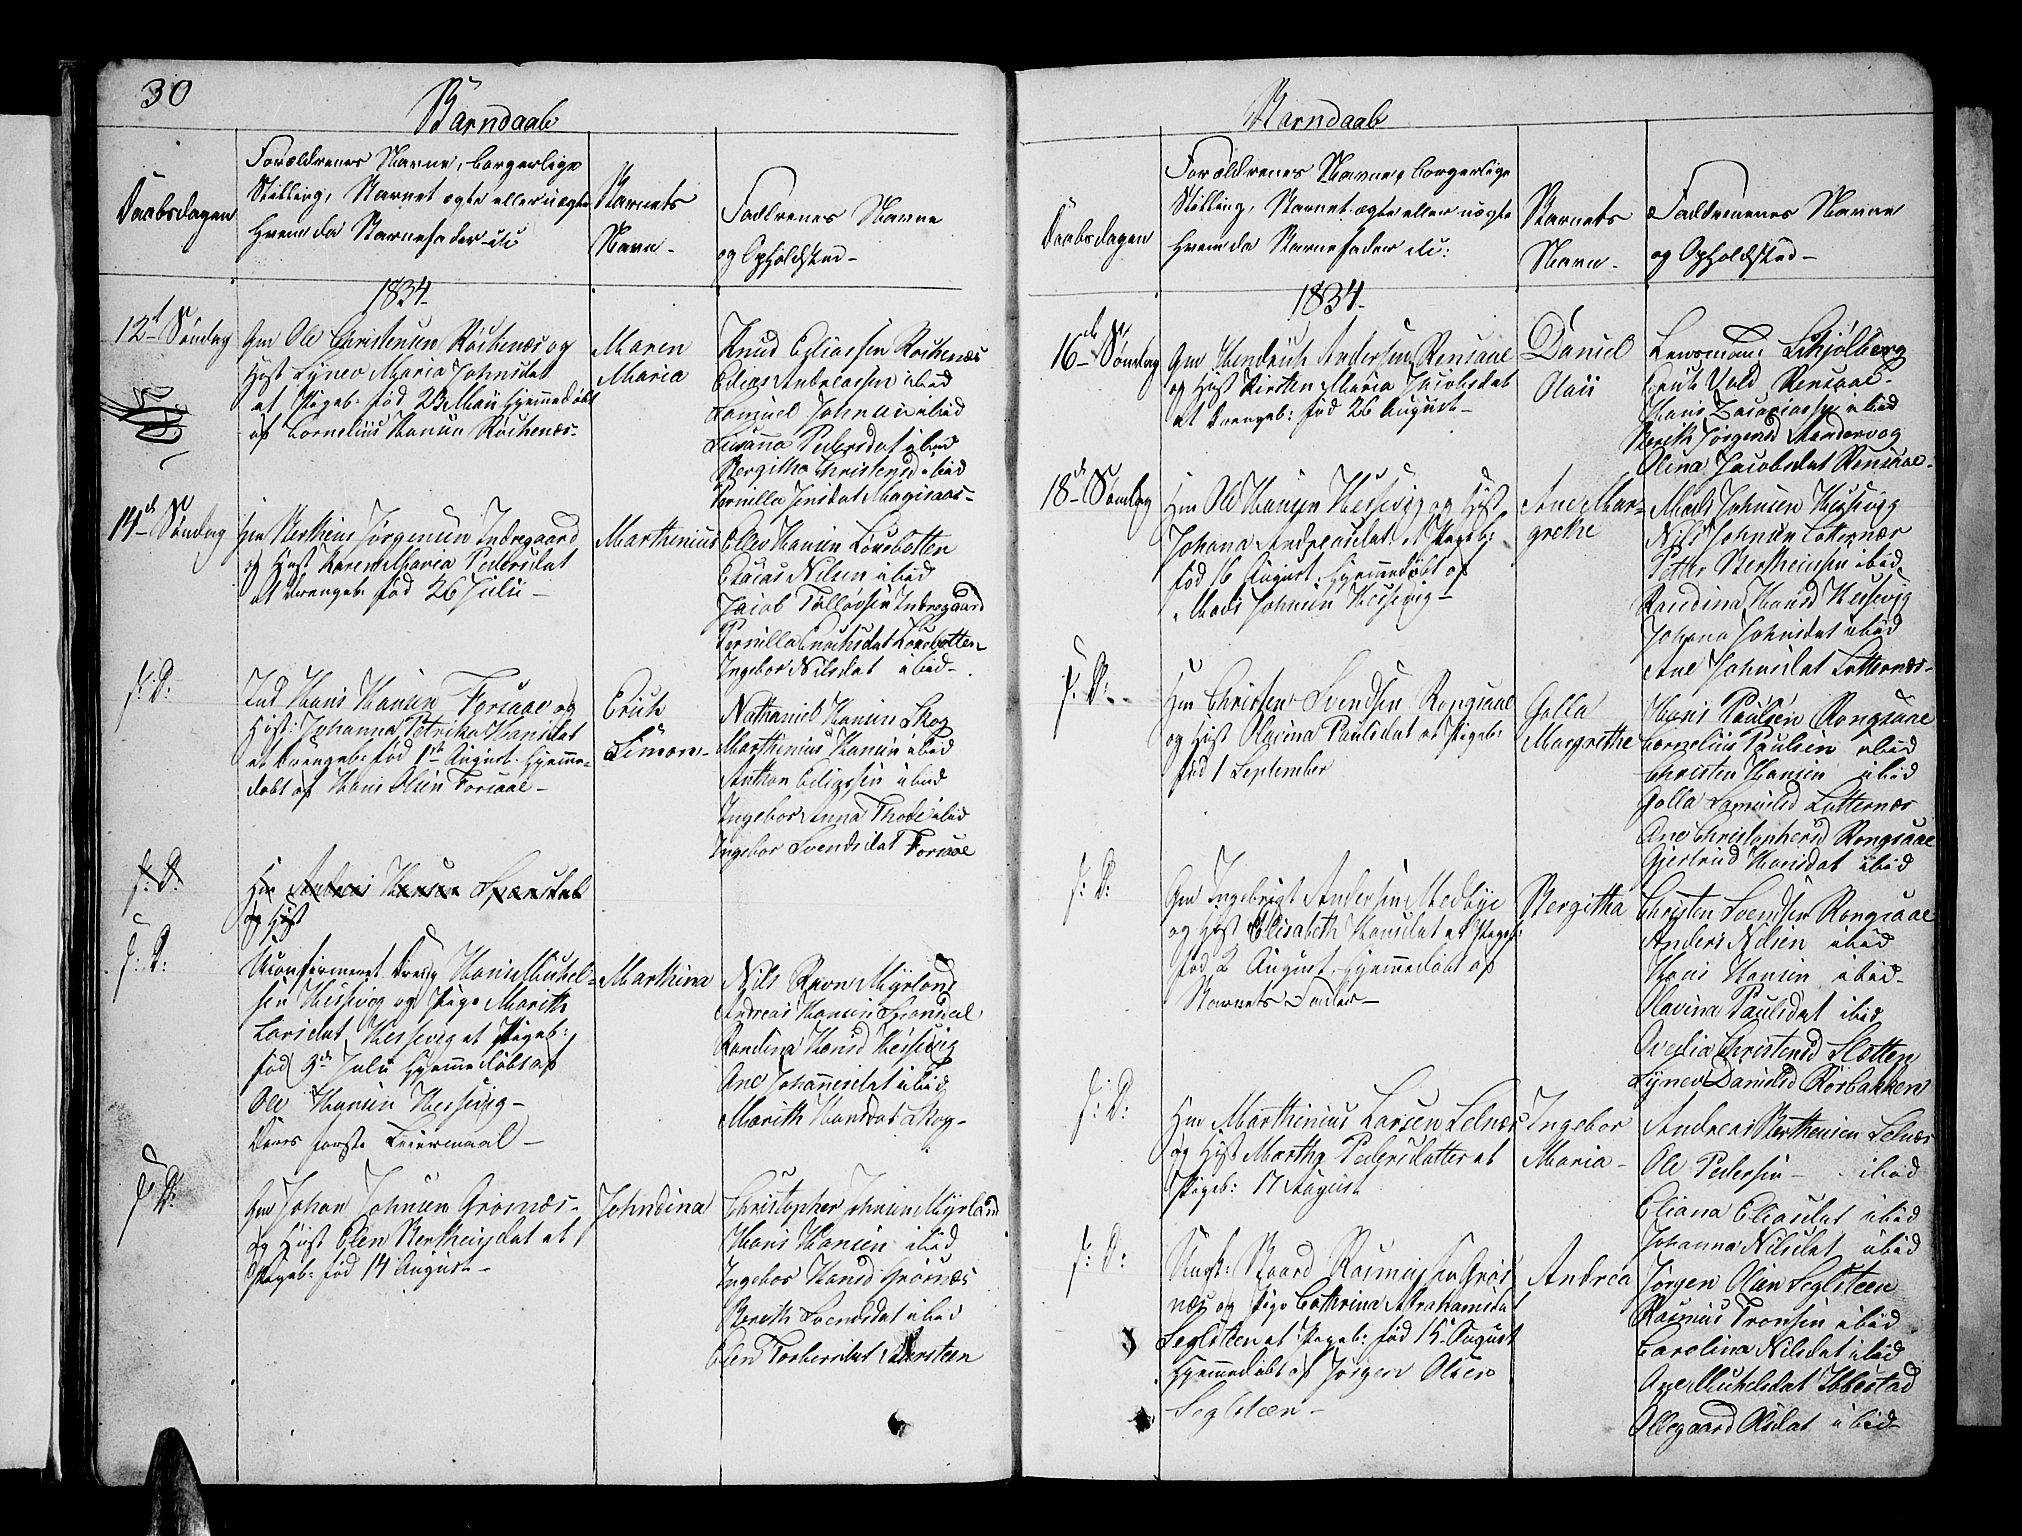 30
Barndaab
Daabsdagen
Forældrenes Navne, borgerlige
Stilling, Barnet ægte eller uægte
hvem da Barnefader etc
Barnets
Navn-
Faddrenes Navne
og Opholdsted-
1834-
12te Søndag
Gm Ole Christensen Rochenæs og
Hust Synev Maria Johnsdat
et Pigeb: fød 23 Mai hjemmedøbt
af Cornelius Hansen Rochenæs-
Maren
Maria
Knud Eliassen Rochenæs
Elias Andreassen ibid
Samuel Johnsen ibid
Susanna Pedersdat ibid
Bergitha Christensd ibid
Pernilla Jensdat
14de Søndag
Hm Bertheus Jørgensen Indregaard
og Hust Karen Maria Pedersdat
et Drengeb: fød 26 Juli-
Marthinius
Ellev Hansen Lønsbotten
Esaias Nilsen ibid
Jacob Tollevsen Indregaard
Pernilla Enochsdat
Ingebor Nilsdat ibid-
f: D:
Ind Hans Hansen Forsaae og
Hust: Johanna Petrika Hansdat
et Drengeb: fød 1ste August hjemme-
døbt af Hans Olsen Forsaae-
Erich
Simon-
Nathaniel Hansen Skog
Marthinius Hansen ibid
Anthon Eliassen ibid
Ingebor Anna Thode ibid
Ingebor Svendsdat Forsaae
f: D:
Hm Andreas Hansen Spansdal
og Hust
f: D:
Uconfirmeret Dreng Hans Michel-
sen Hessevig og Pige Marith
Larsdat Hessevig et Pigeb:
fød 3de Juli hjemmedøbt af
Ole Hansen Hessevig-
Deres første Leiermaal-
Marthina
Nils Ravn Myrland
Andreas Hansen Spansdal
Randina Hansd Hessevig
Ane Johannesdat ibid
Marith Hansdat Skog-
f: D:
Gm Johan Johnsen Grønæs-
og Hust Elen Bertheusdat et
Pigeb: fød 14 August-
Johndina
Christopher Johnsen Myrland
Hans Hansen ibid
Ingebor Hansd Grønæs
Bereth Svendsdat ibid
Elen Torbersdat
Barndaab
Daabsdagen
Forældrenes Navne, borgerlige
Stilling, Barnet ægte eller uægte
hvem da Barnefader etc:
Barnets
Navn-
Faddrenes Navne
og Opholdsted-
1834-
16de Søndag
Gm Hendrich Andersen Rensaae
og Hust Kirsten Maria Jacobsdat
et Drengeb: fød 26 August-
Daniel
Olaii
Lensmand Schjølberg
Vold Rensaae-
Hans Zacariassen ibid
Berith Jørgensd
Olina Jacobsdat Rensaae-
18de Søndag
Hm Ole Hansen Hessevig og Hust
Johana Andreasdat: et Pigeb:
fød 16 August, hjemmedøbt af
Mads Johnsen Hessevig-
Ane Mar-
grethe
Mads Johnsen Hessevig
Nils Johnsen Lotternæs
Petter Bertheusen ibid
Randina Hansd Hessevig
Johana Johnsdat ibid
Ane Johnsdat Lotternæs-
f: D:
Hm Christen Svendsen Rongsaae
og Hust Olavina Paulsdat et Pigeb:
fød 1 September
Golla
Margrethe
Hans Paulsen Rongsaae
Cornelius Paulsen ibid
Christen Hansen ibid
Golla Samuelsd Lotternæs
Ane Christophersd Rongsaae
Gjertrud Hansdat ibid
f: D:
Gm Ingebrigt Andersen Medbye
og Hust Elisabeth Hansdat et Pigeb:
fød 2 August, hjemmedøbt af
Barnets Fader-
Bergitha
Christen Svendsen Rongsaae
Anders Nilsen ibid
Hans Hansen ibid-
Olavina Paulsdat ibid
Ovedia Christensd Slotten
Synev Danielsd Rørbakken
f: D:
Hm Marthinius Larsen Selnæs
og Hust Martha Pedersdatter et
Pigeb: 17 August
Ingebor
Maria-
Andreas Bertheusen Selnæs
Ole Pedersen - ibid
Eliana Eliasdat ibid
Johanna Nilsdat ibid
f: D:
Baard Rasmussen Grøs
næs og Pige Cathrina Abrahamsdat
Seglsteen et Pigeb: fød 15 August
hjemmedøbt af Jørgen Olsen
Seglsteen-
Andrea
Jørgen Olsen Seglsteen
Rasmus Tronsen ibid
Carolina Nilsdat ibid
Ane Michelsdat Ibbestad
Ollegaard Olsdat ibid-